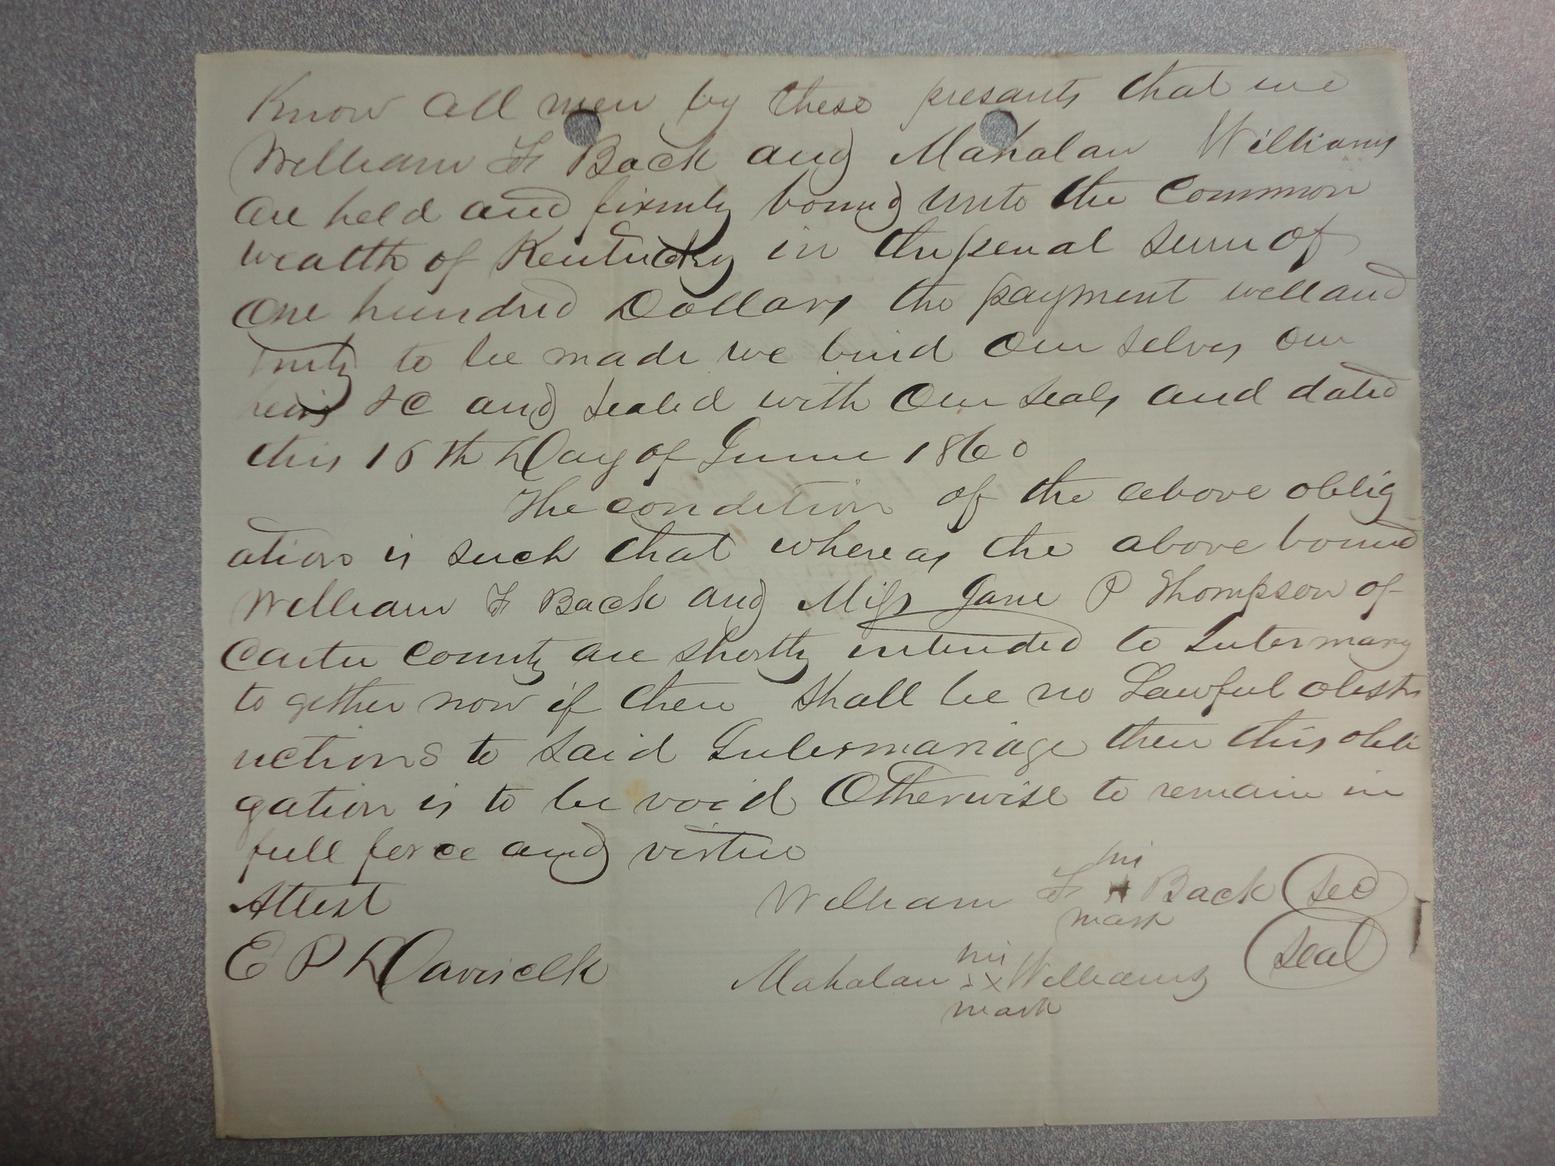 Know all men by these presants that we
William F Back and Mahalan Williams
are held and firmly bound unto the Common
wealth of Kentucky in the penal sum of
One hundred Dollars the payment well and
truly to be made we bind our selves our
heirs &C and sealed with our seals and dated
this 16th Day of June 1860
The condition of the above oblig
ation is such that whereas the above bound
William F Back and Miss Jane P Thompson of
Carter County are shortly intended to Intermarry
to gether now if there shall be no Lawful obstr
uctions to said Intermariage then this obli
gation is to be void Otherwise to remain in
full force and virtue
Attest
William F his X Back seal
mark
E P Davis clk
seal
Mahalan his X Williams
mark